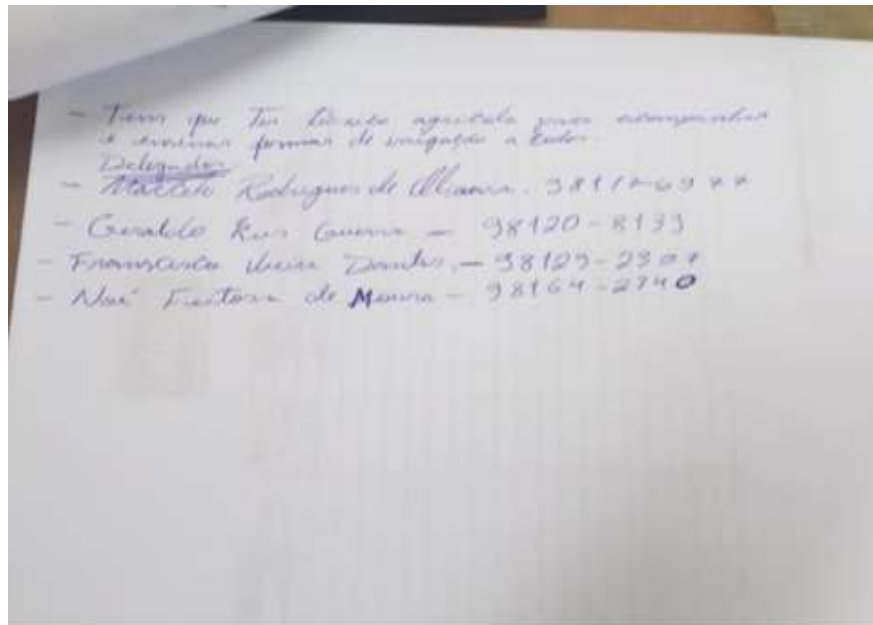 - Tem que Ter técnico agrícola para acompanhar
e ensinar formas de irrigação a todos.
Delegados
- Marcelo Rodrigues de Oliveira. 98117-6977
- Geraldo Guerra - 98120-8133
- Vieira Dantas - 98129-2307
- Feitosa de Moura - 98164-2740